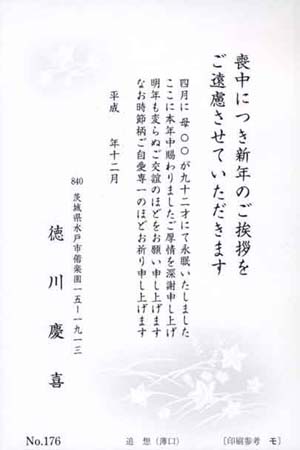 喪中につき新年のご挨拶を
ご遠慮させていただきます
四月に 母〇〇が九十二才にて永眠いたしました
ここに本年中賜わりましたご厚情を深謝申し上げ
明年も変らぬご交誼のほどをお願い申し上げます
なお時節柄ご自愛専一のほどお祈り申し上げます
平成　年十二月
840
茨城県水戸市偕楽園一五ー一九一三
徳川慶喜
No.176
追想（薄口）
〔印刷参考　モ〕